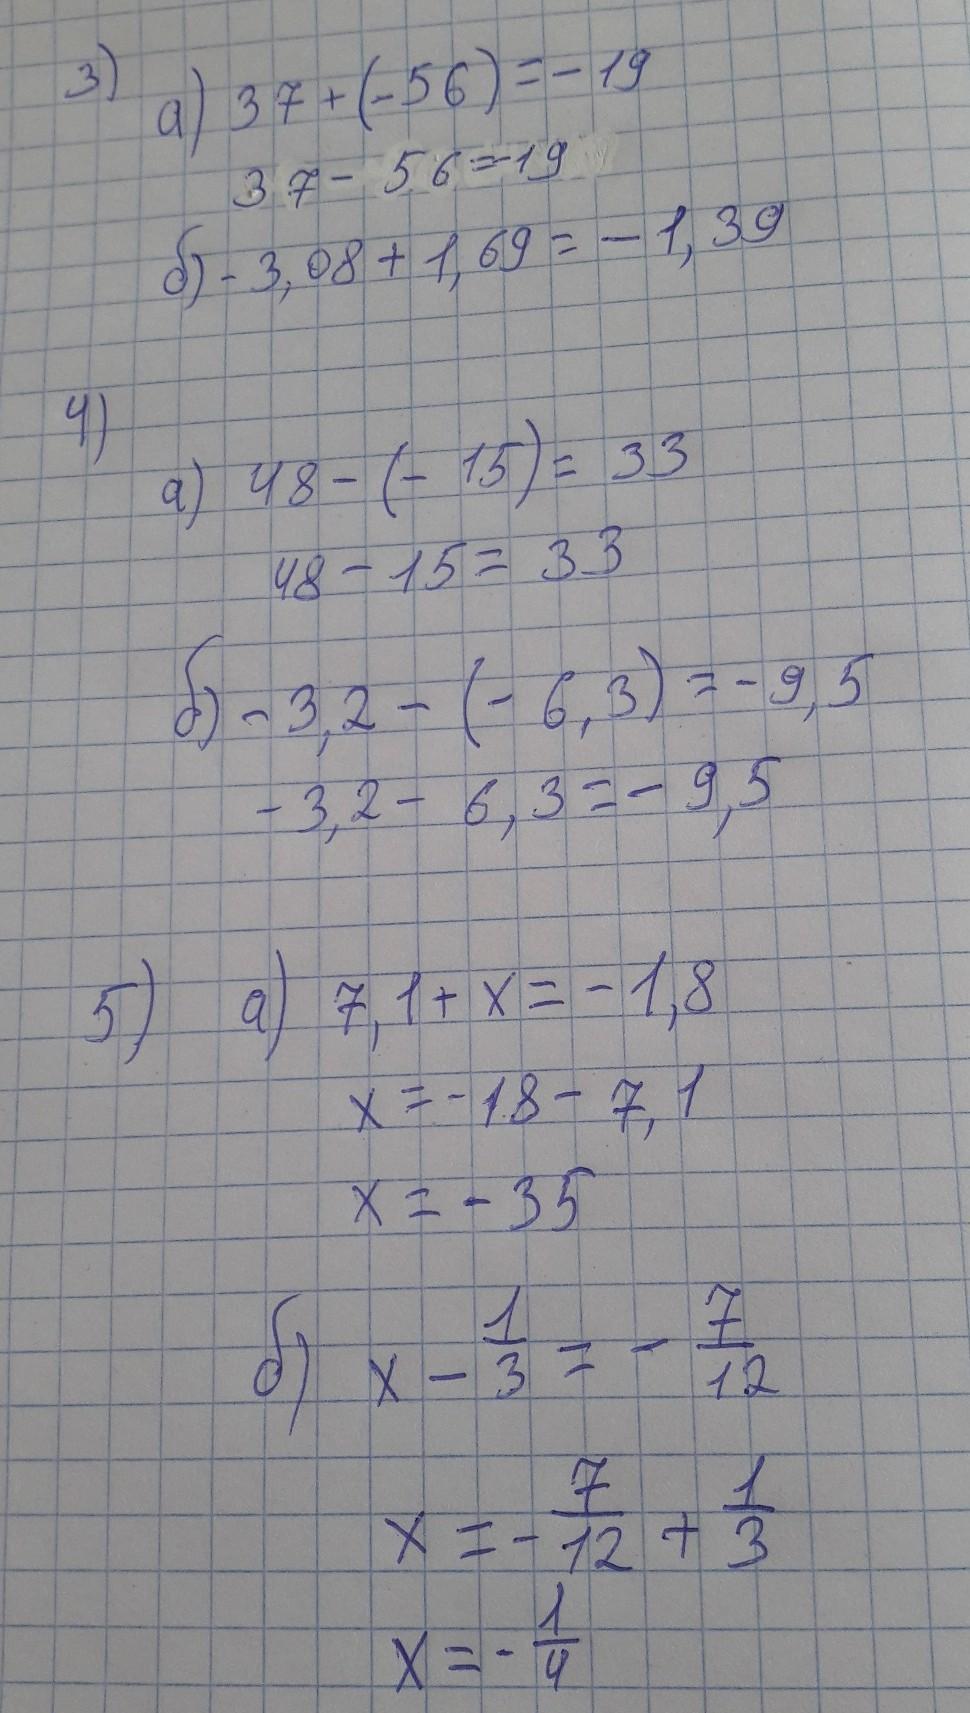 3)
а) 37+(-56)=-19
37-56=-19
б) -3,08+1,69=-1,39
4)
а) 48-(-15)=33
48-15=33
б) -3,2-(-6,3)=-9,5
-3,2-6,3=-9,5
5) а) 7,1+x=-1,8
x=-18-7,1
x=-35
б) x-1/3=-7/12
x=-7/12+1/3
x=-1/4